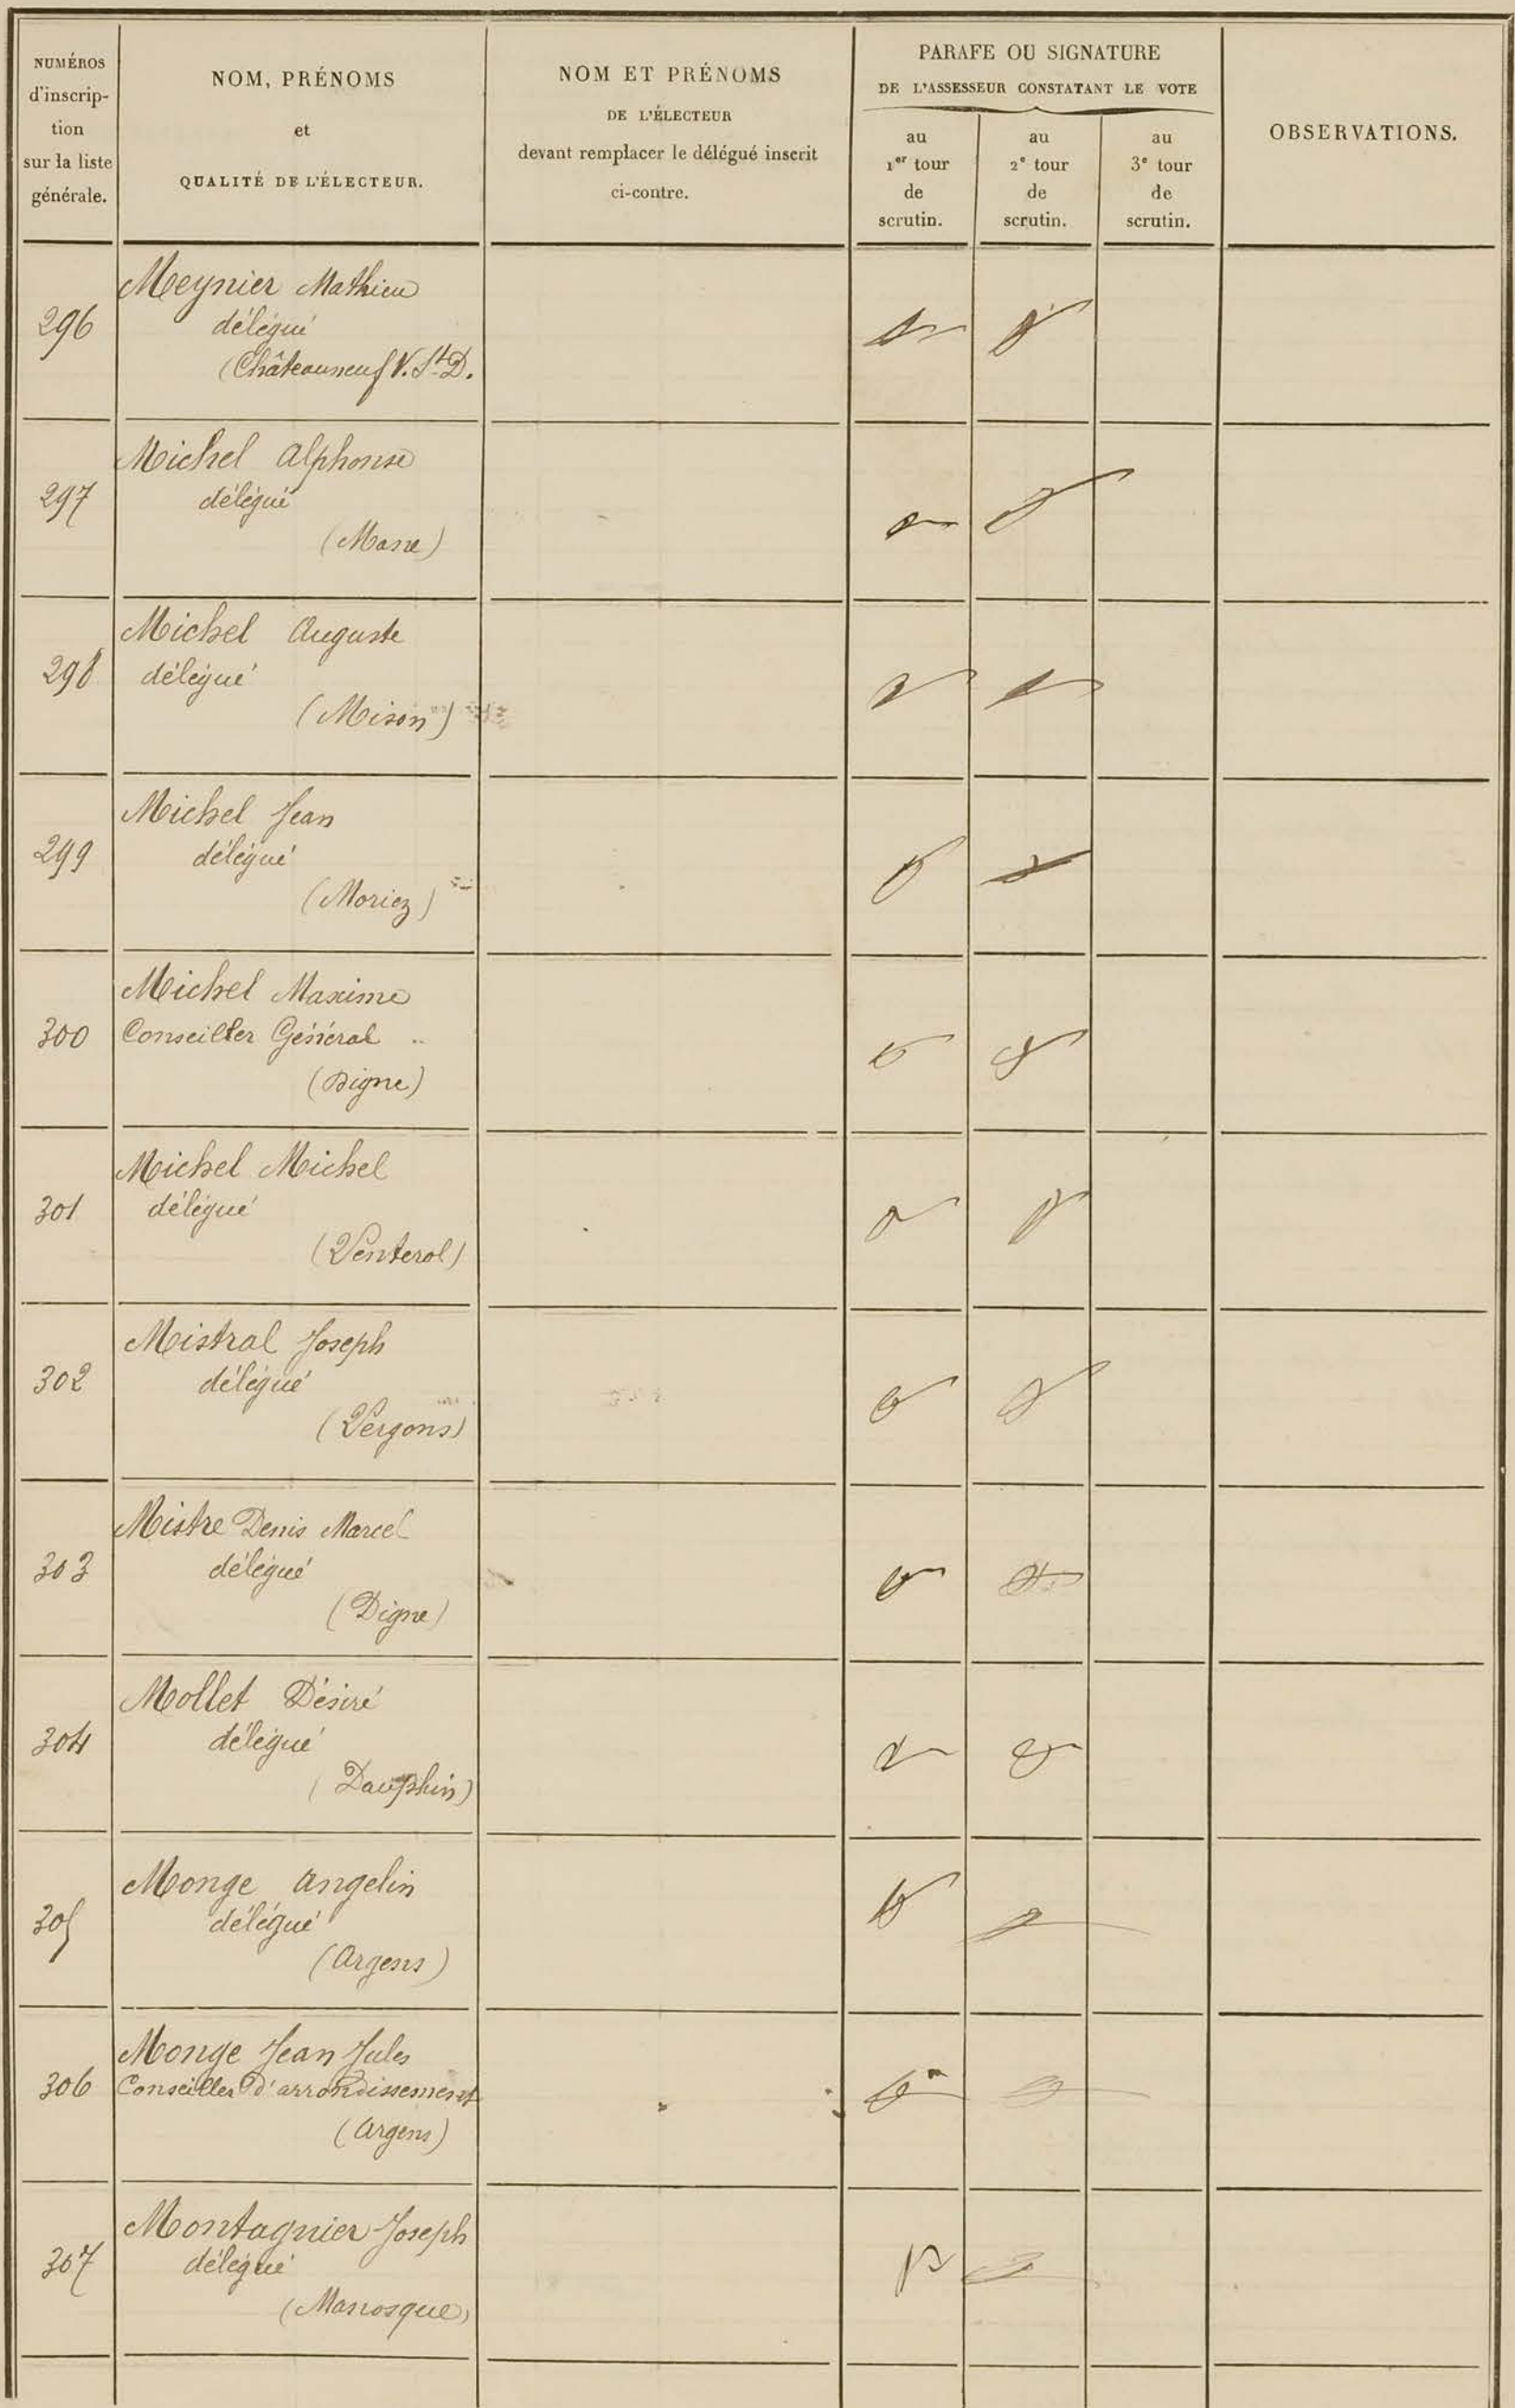 NUMÉROS
d'inscrip-
tion
sur la liste
générale.
NOM, PRÉNOMS
et
QUALITÉ DE L'ÉLECTEUR.
NOM ET PRÉNOMS
DE L'ÉLECTEUR
devant remplacer le délégué inscrit
ci-contre.
PARAFE OU SIGNATURE
DE L'ASSESSEUR CONSTATANT LE VOTE
au
1er tour
de
scrutin.
au
2e tour
de
scrutin.
au
3e tour
de
scrutin.
OBSERVATIONS.
296
Meynier Mathieu
délégué
(Châteauneuf V. St D.
297
Michel Alphonse
délégué
(Mane)
298
Michel Auguste
délégué
(Mison)
299
Michel Jean
délégué
(Moriez)
300
Michel Maxime
Conseiller Général
(Digne)
301
Michel Michel
délégué
(Venterol)
302
Mistral Joseph
délégué
(Vergons)
303
Mistre Denis Marcel
délégué
(Digne)
304
Mollet Désiré
délégué
(Dauphin)
305
Monge Angelin
délégué
(Argens)
306
Monge Jean Jules
Conseiller d'arrondissement
(Argens)
307
Montagnier Joseph
délégué
(Manosque)